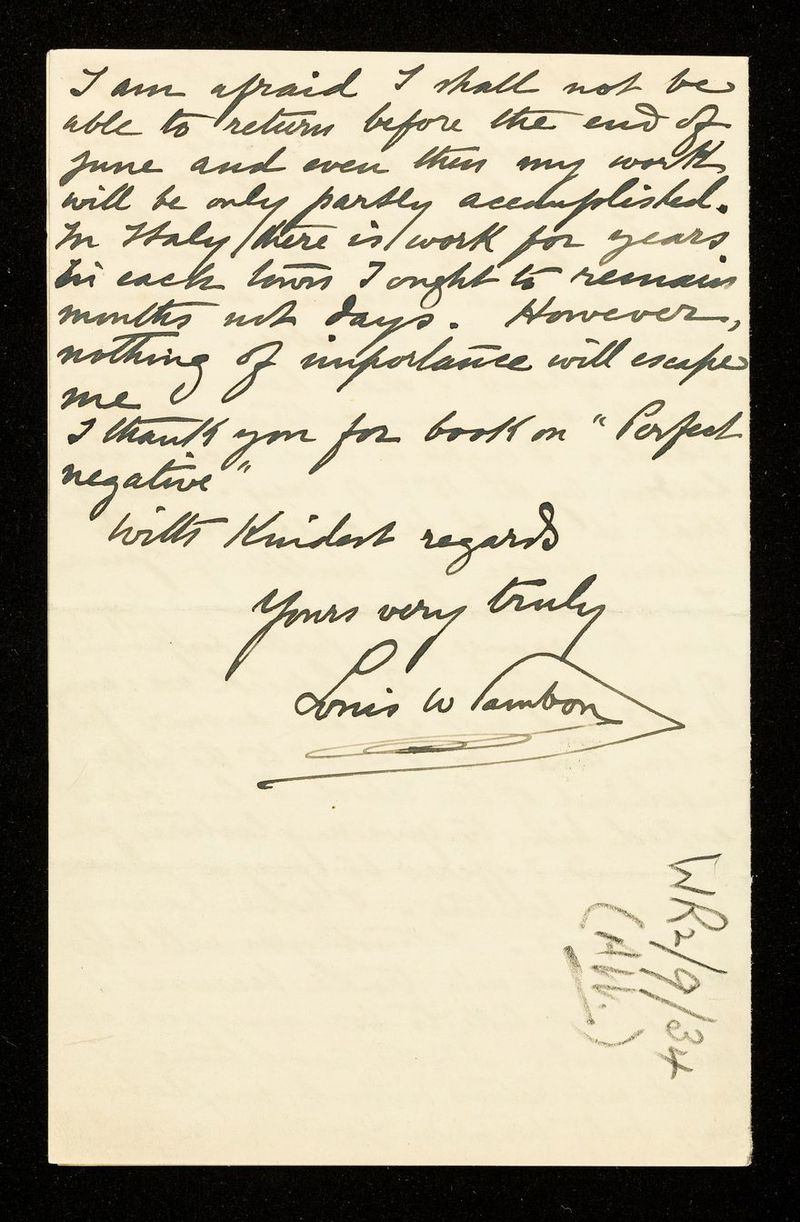 I am afraid I shall not be
able to return before the end of
June and even then my work
will be only partly accomplished.
In Italy there is work for years
In each town I ought to remain
months not days. However,
nothing of importance will escape
me
I thank you for book on "Perfect
negative"
With Kindest regards
Yours very truly
Louis W Sambon
WR2/9/34
(AW.)